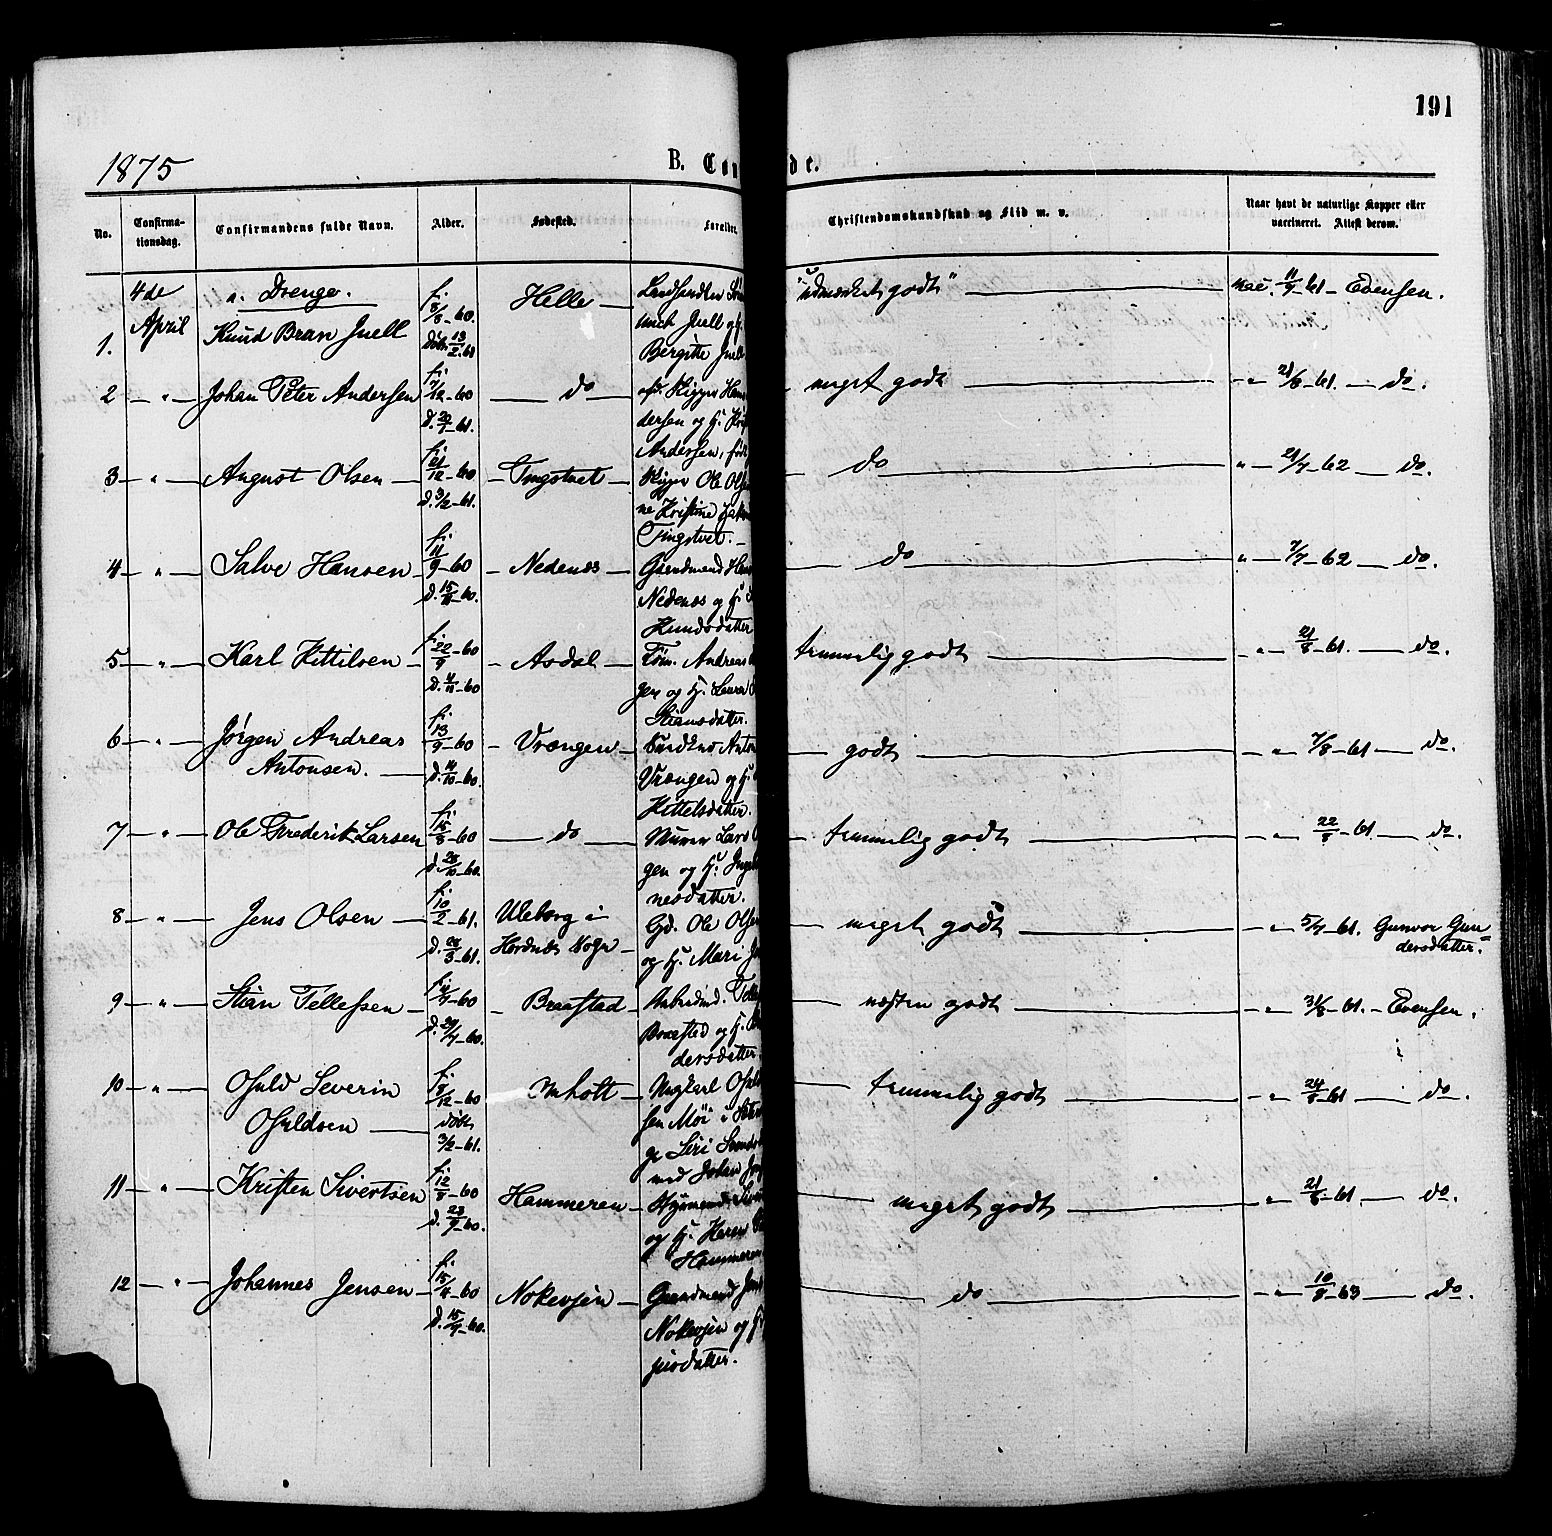 191
1875
B. Con de.
No.
Confirma-
tionsdag.
Confirmandens fulde Navn.
Alder.
Fødested.
Forælder
Christendomskundskab og Flid m. v.
Naar havt de naturlige Kopper eller
vaccineret. Attest derom.
4de April
a. Drenge.
1. Knud Bran Juell
f. 8/8-60.
døbt 13/2-61
Helle
Bergitte Juell
"Udmærket godt"
vac. 11/7-61 - Evensen.
2 - " - Johan Peter Andersen
f. 7/12-60
d. 20/1-61.
do
dersen og H.
meget godt
- " - 21/8-61. - do.
Andersen, født
3 - " - August Olsen
f. 21/12-60
d. 3/2-61.
Tingstvet
Ole Olsen
ne Kristine
Tingstvet. -
do
" - 21/7-62 - do.
4 - " - Salve Hansen
f. 11/9-60
d. 15/11-60.
Nedenæs
Gaardmand
Nedenæs og H.
Knudsdatter
do
" - 7/7-62 do.
5 - " - Karl Kittilsen
f. 22/9-60
d. 4/11-60
Asdal
Tøm. Andreas
gen og H. Laura
Stiansdatter.
temmelig godt
- " - 21/8-61. - do.
6 - " - Jørgen Andreas
Antonsen.
f. 13/9-60
d. 14/10-60.
Vrængen
Vrængen og H.
Kittelsdatter.
godt
- " - 7/8-61 - do.
7 - " - Ole Frederik Larsen
f. 15/8-60
d. 28/10-60.
do
Murer Lars
gen og H.
nesdatter.
temmelig godt
- " - 22/8-61 do.
8 - " - Jens Olsen
f. 10/2-61.
d. 28/3-61.
Uleborg i
Herdnæs Sogn
Gd. Ole Olsen
og H. Mari
meget godt
5/7-61. Gunvor Gun=
dersdatter.
9 - " - Stian Tellefsen
f. 4/7-60
d. 29/7-60.
Braastad
Arbeidsmd.
Braasted og H.
dersdatter.
næsten godt
- " - 31/8-61. - Evensen.
10 - " - Osuld Severin
Osuldsen
f. 18/12-60
døbt
3/2-61.
Imholt
Ungkarl
sen Møi i
Siri
med Johan
temmelig godt
- " - 24/8-61 do.
11 - " - Kristen Sivertsen
f. 12/8-60
d. 23/9-60.
Hammeren
og H. Karen
Hammeren
meget godt
" - 21/8-61 - do.
12 - " - Johannes Jensen
f. 15/4-60
d. 15/7-60.
Nokevjen
Gaardmand
Nokevjen og H.
do
- " - 10/8-63 - do.